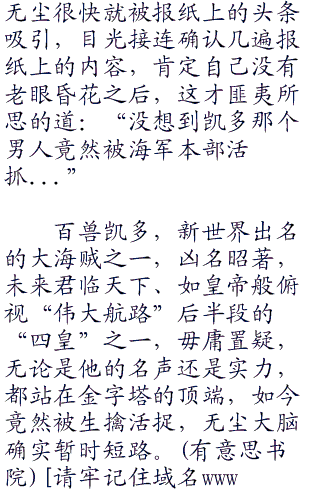 无尘很快就被报纸上的头条
吸引，目光接连确认几遍报
纸上的内容，肯定自己没有
老眼昏花之后，这才匪夷所
思的道：“没想到凯多那个
男人竟然被海军本部活
抓...”
百兽凯多，新世界出名
的大海贼之一，凶名昭著，
未来君临天下、如皇帝般俯
视“伟大航路”后半段的
“四皇”之一，毋庸置疑，
无论是他的名声还是实力，
都站在金字塔的顶端，如今
竟然被生擒活捉，无尘大脑
确实暂时短路。(有意思书
院)[请牢记住域名www